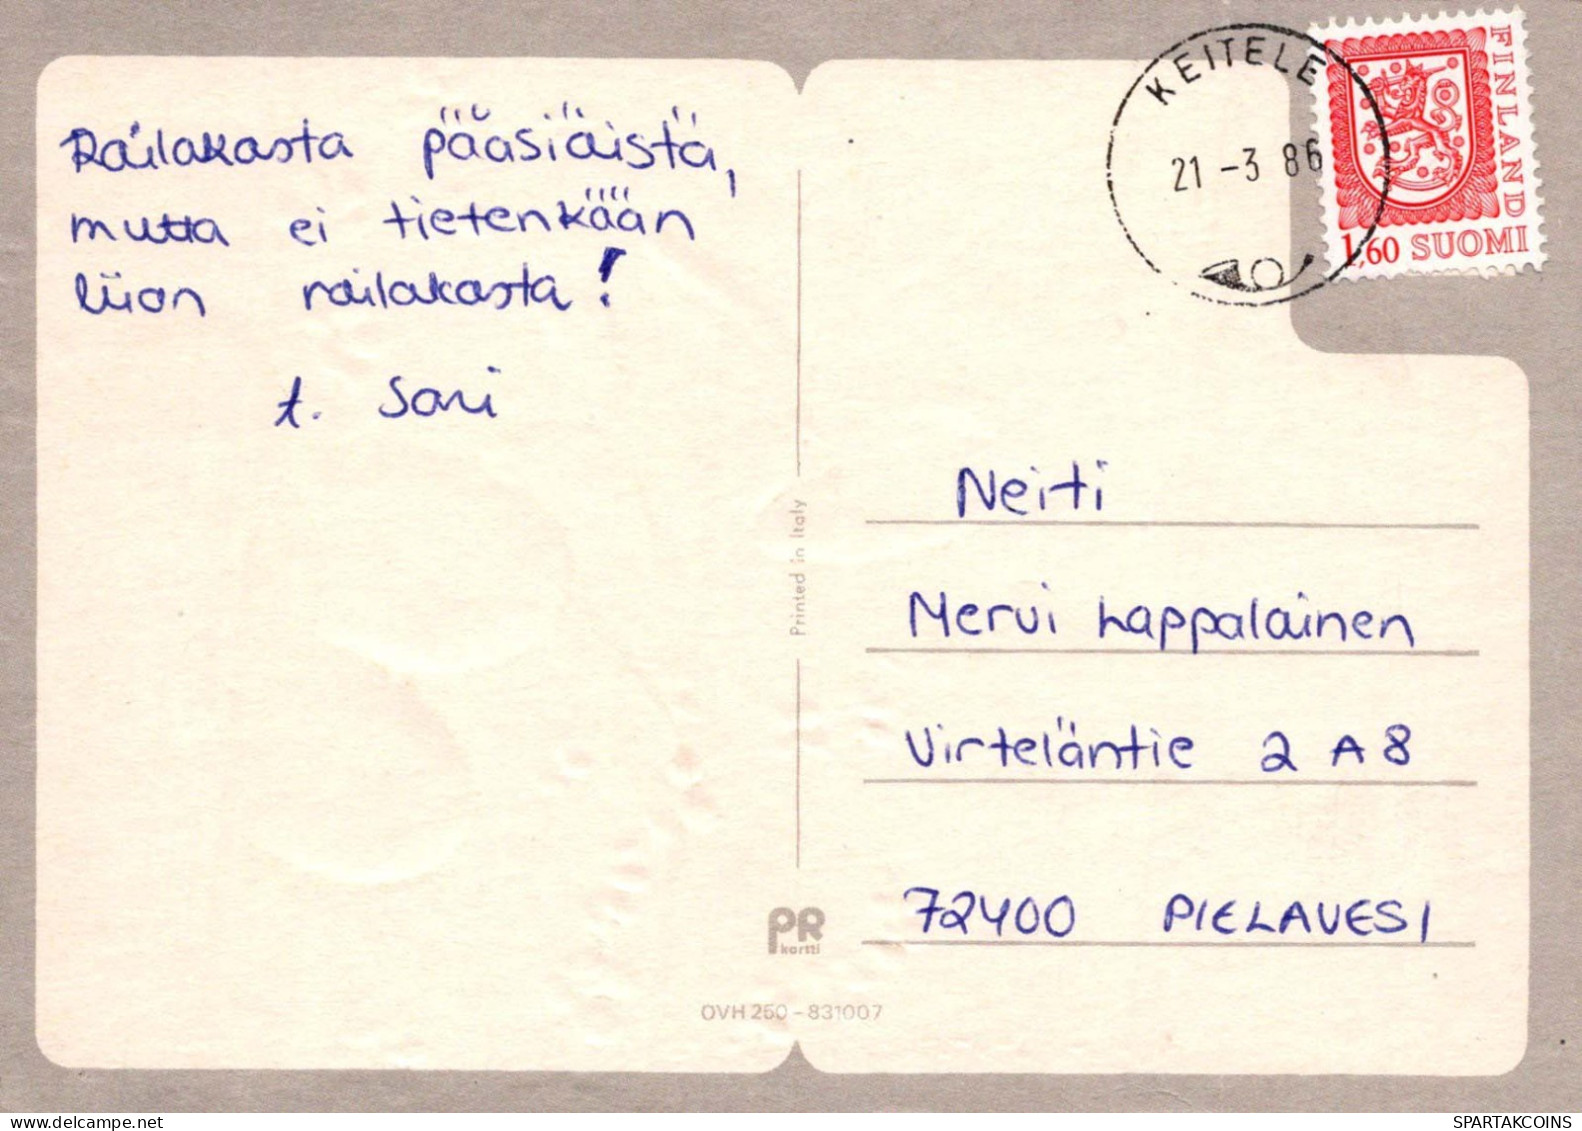 Railakasta pääsiäistä,
mutta ei tietenkään
liian railakasta!
t. Sari
KEITELE
21 -3 86
FINLAND
1,60 SUOMI
Neiti
Mervi Lappalainen
Virteläntie 2 A 8
72400 PIELAVESI
Printed in Italy
PR
kortti
OVH 250 - 831007
SPARTAKCOINS